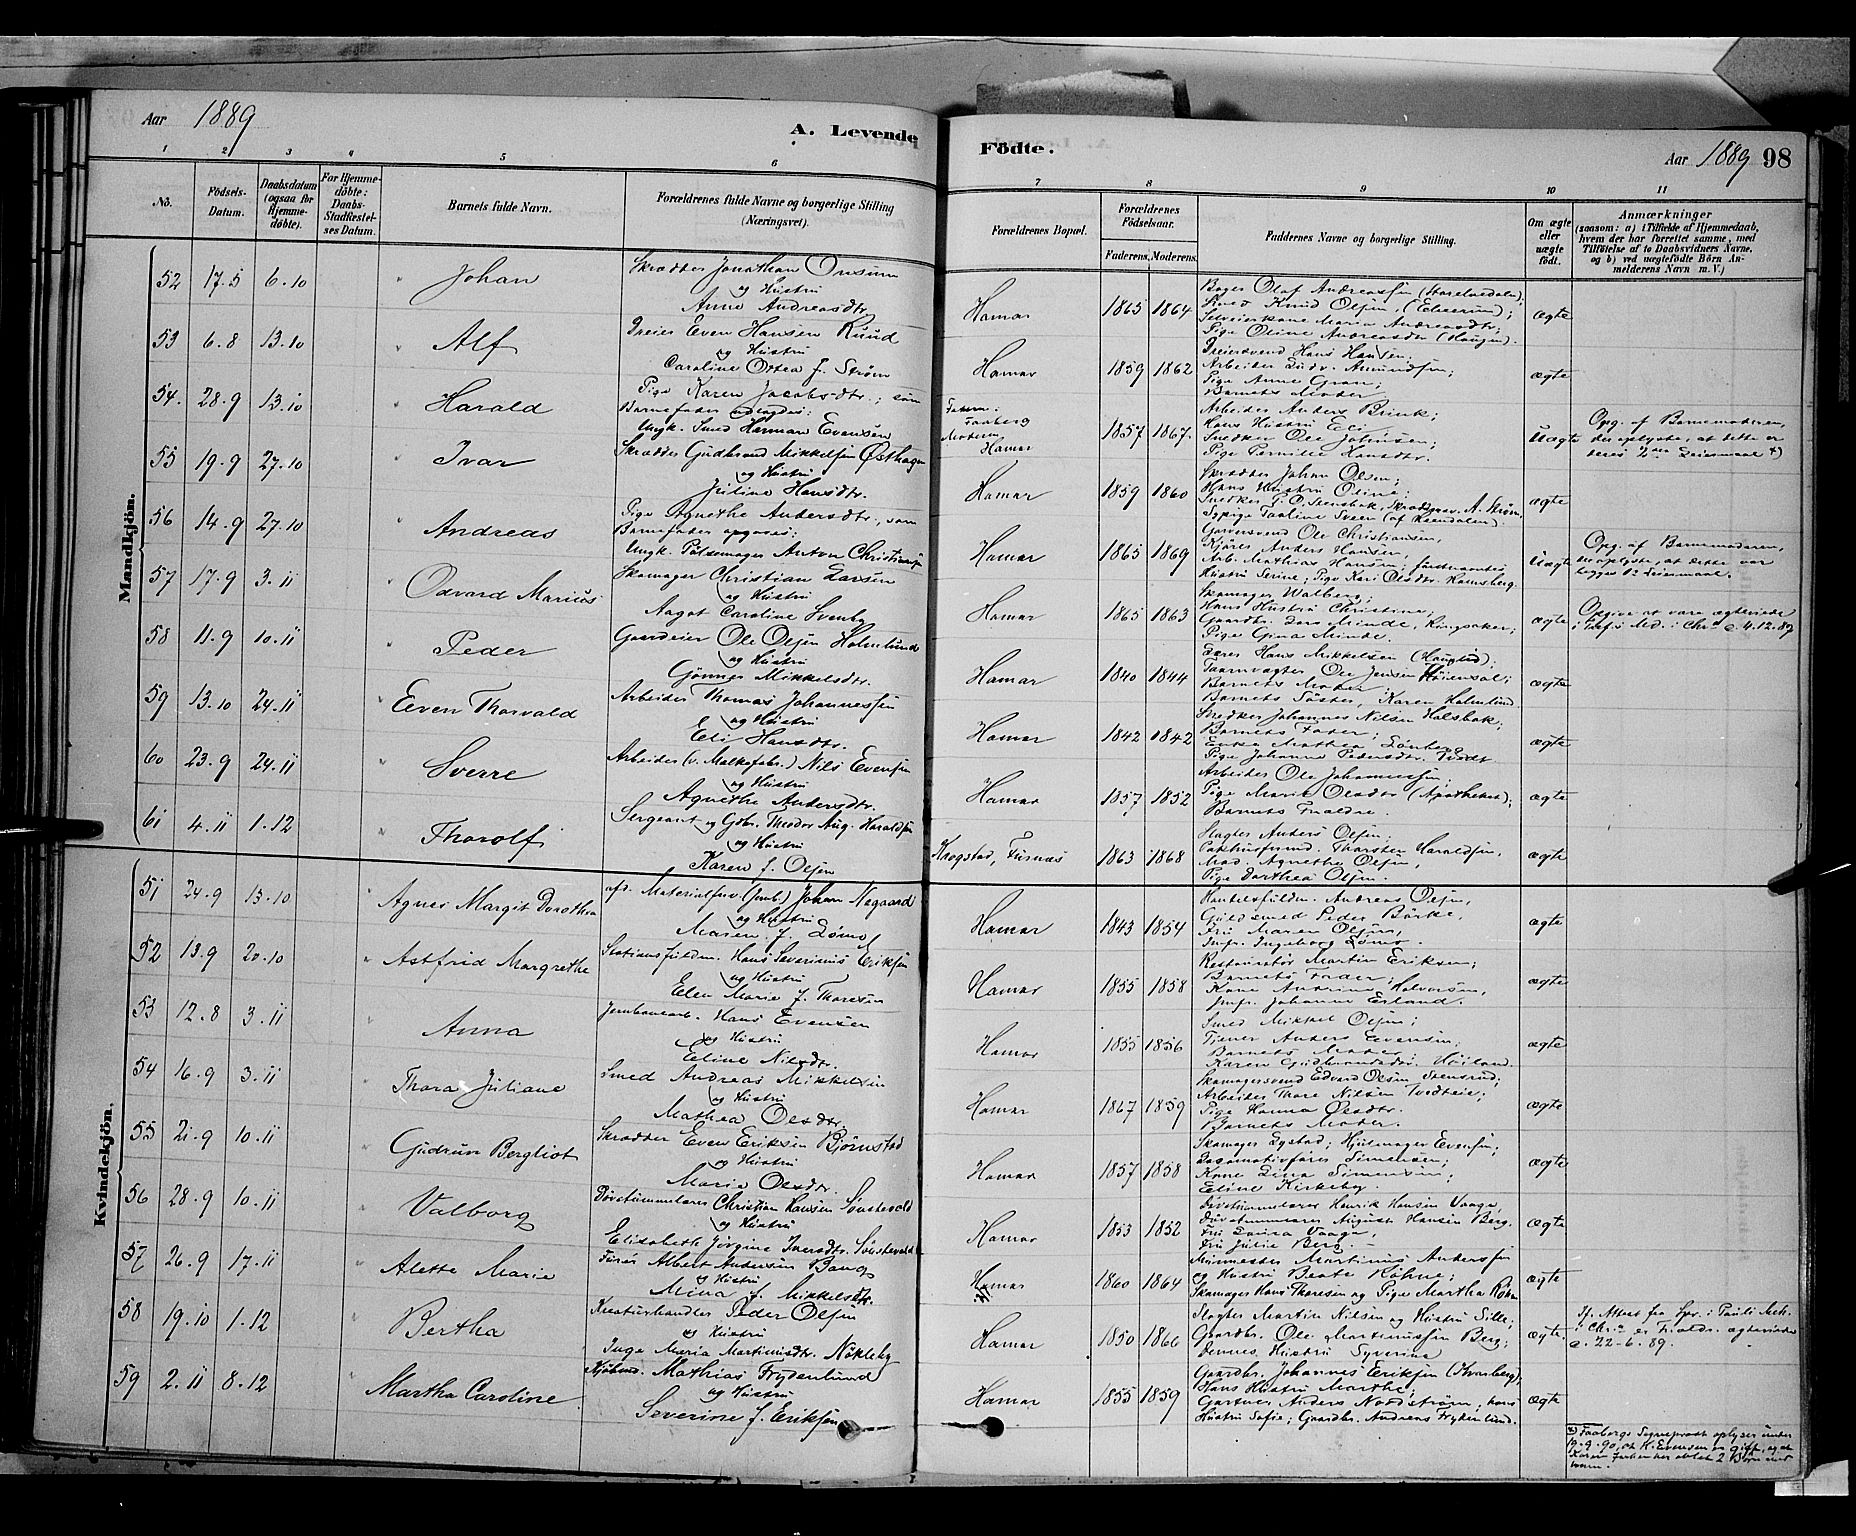 Aar 1889
A. Levende
Födte.
Aar 1889 98
1 2 3 4 5 6 7 8 9 10 11
No.
Födsels-Datum.
Daabsdatum (ogsaa for Hjemme-döbte).
For Hjemme-döbte: Daabs-Stadfæstel-ses Datum.
Barnets fulde Navn.
Forældrenes fulde Navne og borgerlige Stilling (Næringsvei).
Forældrenes Bopæl.
Forældrenes Födselsaar.
Faderens. Moderens.
Faddernes Navne og borgerlige Stilling.
Om ægte eller uægte födt.
Anmærkninger
(saasom: a) i Tilfælde af Hjemmedaab,
hvem der har forrettet samme, med
Tilföielse af to Daabsvidners Navne,
og b) ved uægtefödte Börn An-
melderens Navn m. V.)
Mandkjön.
52 17.5 6.10 " Johan
Skrædder Jonathan Onsum
og Hustru
Anne Andreasdtr.
Hamar 1865 1864
Bager Olaf Andreassen
Smed Knud Olsen, (Elverum);
Selveierkone Maria Andreasdtr;
Pige Oline Andreasdtr (Haugen).
ægte
53 6.8 13.10 " Alf
Dreier Even Hansen Ruud
og Hustru
Caroline Ostea f. Strøm
Hamar 1859 1862
Dreiersvend Hans Hansen;
Arbeider Ludv. Amundsen;
Pige Anne Gran;
Barnets Moder
ægte
54. 28.9 13.10 " Harald
Pige Karen Jacobsdtr.; som
Barnefader udlagdes:
Ungk. Smed Herman Evensen
Faderen: Faaberg
Moderen Hamar
1857 1867.
Arbeider Anders Brink;
Hans Hustru Eli;
Snedker Ole Johnsen;
Pige Pernille Hansdtr.
uægte
Opg. af Barnemoderen,
der oplyste, at dette er
deres 2det Leiermaal *)
55 19.9 27.10 " Ivar
Skrædder Gudbrand Mikkelsen Østhagen
og Hustru
Juline Hansdtr.
Hamar 1859 1860
Skrædder Johan Olsen;
Hans Hustru Oline;
Snedker P. O. Stensbak, Skrædersv. A. Strøm,
Sypige Pauline Sveen
ægte
56 14.9 27.10 " Andreas
Pige Agnethe Andersdtr., som
Barnefader opgaves:
Ungk. Pølsemager Anton Christiansen
Hamar 1865 1869
Garversvend Ole Christiansen,
Kjører Anders Hansen,
Arb. Mathias Hansen; førstnævntes
Hustru Serine; Pige Kari Olsdtr. Ramsberg.
uægte
Opg. af Barnemoderen,
der oplyste, at dette var
begges 1ste Leiermaal.
57 17.9 3.11 " Odvard Marius
Skomager Christian Larsen
og Hustru
Aagot Caroline Svenby
Hamar 1865 1863
Skomager Walberg;
Hans Hustru Christine;
Gaardbr. Lars Minde, Ringsaker;
Pige Gina Minde.
ægte
Opgive at være ægteviede
i Chr.a d. 4.12.89
58 11.9 10.11 Peder
Gaardeier Ole Olsen Holmlund
og Hustru
Gønner Mikkelsdtr.
Hamar 1840 1844
Lærer Hans Mikkelsen (Haugstad);
Taarnvægter Ole Jensen Høiensal;
Barnets Moder
Barnets Søster, Karen Holmlund.
ægte
59 13.10 24.11 " Eeven Thorvald
Arbeider Thomas Johannessen
og Hustru
Eli Hansdtr.
Hamar 1842 1842
Snedker Johannes Nilsen Halsbak;
Barnets Fader;
Enke Mathea Lønberg
Pige Johanne Pedersdtr. Tvedt
ægte
60 23.9 24.11 " Sverre
Arbeider (v. Malkefabr.) Nils Evensen
og Hustru
Agnethe Andersdtr.
Hamar 1857 1852
Arbeider Ole Johannessen;
Pige Marie Olsdtr (Apotheket);
Barnets Forældre
ægte
61 4.11 1.12 " Thorolf
Sergeant og Gbr. Theodor Aug. Haraldsen
og Hustru
Karen f. Olsen
Krogstad, Furnæs 1863 1868
Slagter Anders Olsen.
Pakhusformd. Thorsten Haraldsen,
Mad. Agnethe Olsen,
Pige Dorthea Olsen.
ægte
Kvindekjön.
51 24.9 13.10 " Agnes Margit Dorothea
afd. Materialforv. (Jernb.) Johan Nøgaard
og Hustru
Maren f. Lømo
Hamar 1843 1854
Handelsfuldm. Andreas Olsen,
Guldsmed Peder Børke,
Fru Maren Olsen,
Jmfr. Ingeborg Lømo.
ægte
52 13.9 20.10 " Astfrid Margrethe
Stationsfuldm. Hans Severinus Eriksen
og Hustru
Elen Marie f. Thoresen
Hamar 1855 1858
Restauratør Martin Eriksen;
Barnets Fader;
Kone Andrine Halvorsen,
Jmfr. Johanne Erland.
ægte
53 12.8 3.11 " Anna
Jernbanearb. Hans Evensen
og Hustru
Eline Nilsdtr.
Hamar 1855 1856
Smed Mikkel Olsen;
Tjener Anders Evensen;
Barnets Moder
Karen Gudbrandsdtr. Høiland
ægte
54 16.9 3.11 " Thora Juliane
Smed Andreas Mikkelsen
og Hustru
Mathea Olsdtr.
Hamar 1867 1859
Skomagersvend Edvard Olsen Stensrud;
Arbeider Thore Nilsen Tvedteie;
Pige Hanna Olsdtr.
Barnets Moder.
ægte
55 21.9 10.11 " Gudrun Bergliot
Skrædder Even Eriksen Bjørnstad
og Hustru
Maria Olsdtr.
Hamar 1857 1858
Skomager Lystad; Hjulmager Evensen;
Locomotivfører Simensen;
Kone Lina Simensen;
Eline Kirkeby.
ægte
56 28.9 10.11 " Valborg
Døvstummelærer Christian Hansen Sønstevold
og Hustru
Elisabeth Jørgine Iversdtr. Sønstevold
Hamar 1853 1852
Døvstummelærer Henrik Hansen Vaage,
Døvstummelærer August Hansen Berg,
Fru Lovisa Vaage,
Fru Julie Berg.
ægte
57 26.9 17.11 " Alette Marie
Furér Albert Andersen Bang
og Hustru
Mina f. Mikkelsdtr.
Hamar 1860 1864
Murmester Martinus Andersen
og Hustru Beate Køhne;
Skomager Hans Thoresen og Pige Martha Røhne
ægte
58 19.10 1.12 Bertha
Kreaturhandler Peder Olsen
og Hustru
Inga Maria Martinusdtr. Nøkleby
Hamar 1850 1866
Slagter Martin Nilsen og Hustru Sille;
Gaardbr. Ole Martinussen Berg;
Dennes Hustru Syverine
ægte.
If. Attest fra Spr. i Pauli Mgh.
i Chr.a er Forældr. ægteviede
d. 22-6.89.
59 2.11 8.12 Martha Caroline
Kjøbmd. Mathias Frydenlund
og Hustru
Severine f. Eriksen
Hamar 1855 1859
Gaardbr. Johannes Eriksen (Svenberg);
Hans Hustru Marthe,
Gartner Anders Nordstrøm; hans
Hustru Sofie; Gaardbr. Andreas Frydenlund.
ægte
*) Faabergs Sogneprest oplyser under
19.9.90, at H. Evensen er gift, og at
Karen Jacobsen har avlet 2 Børn med
ham.